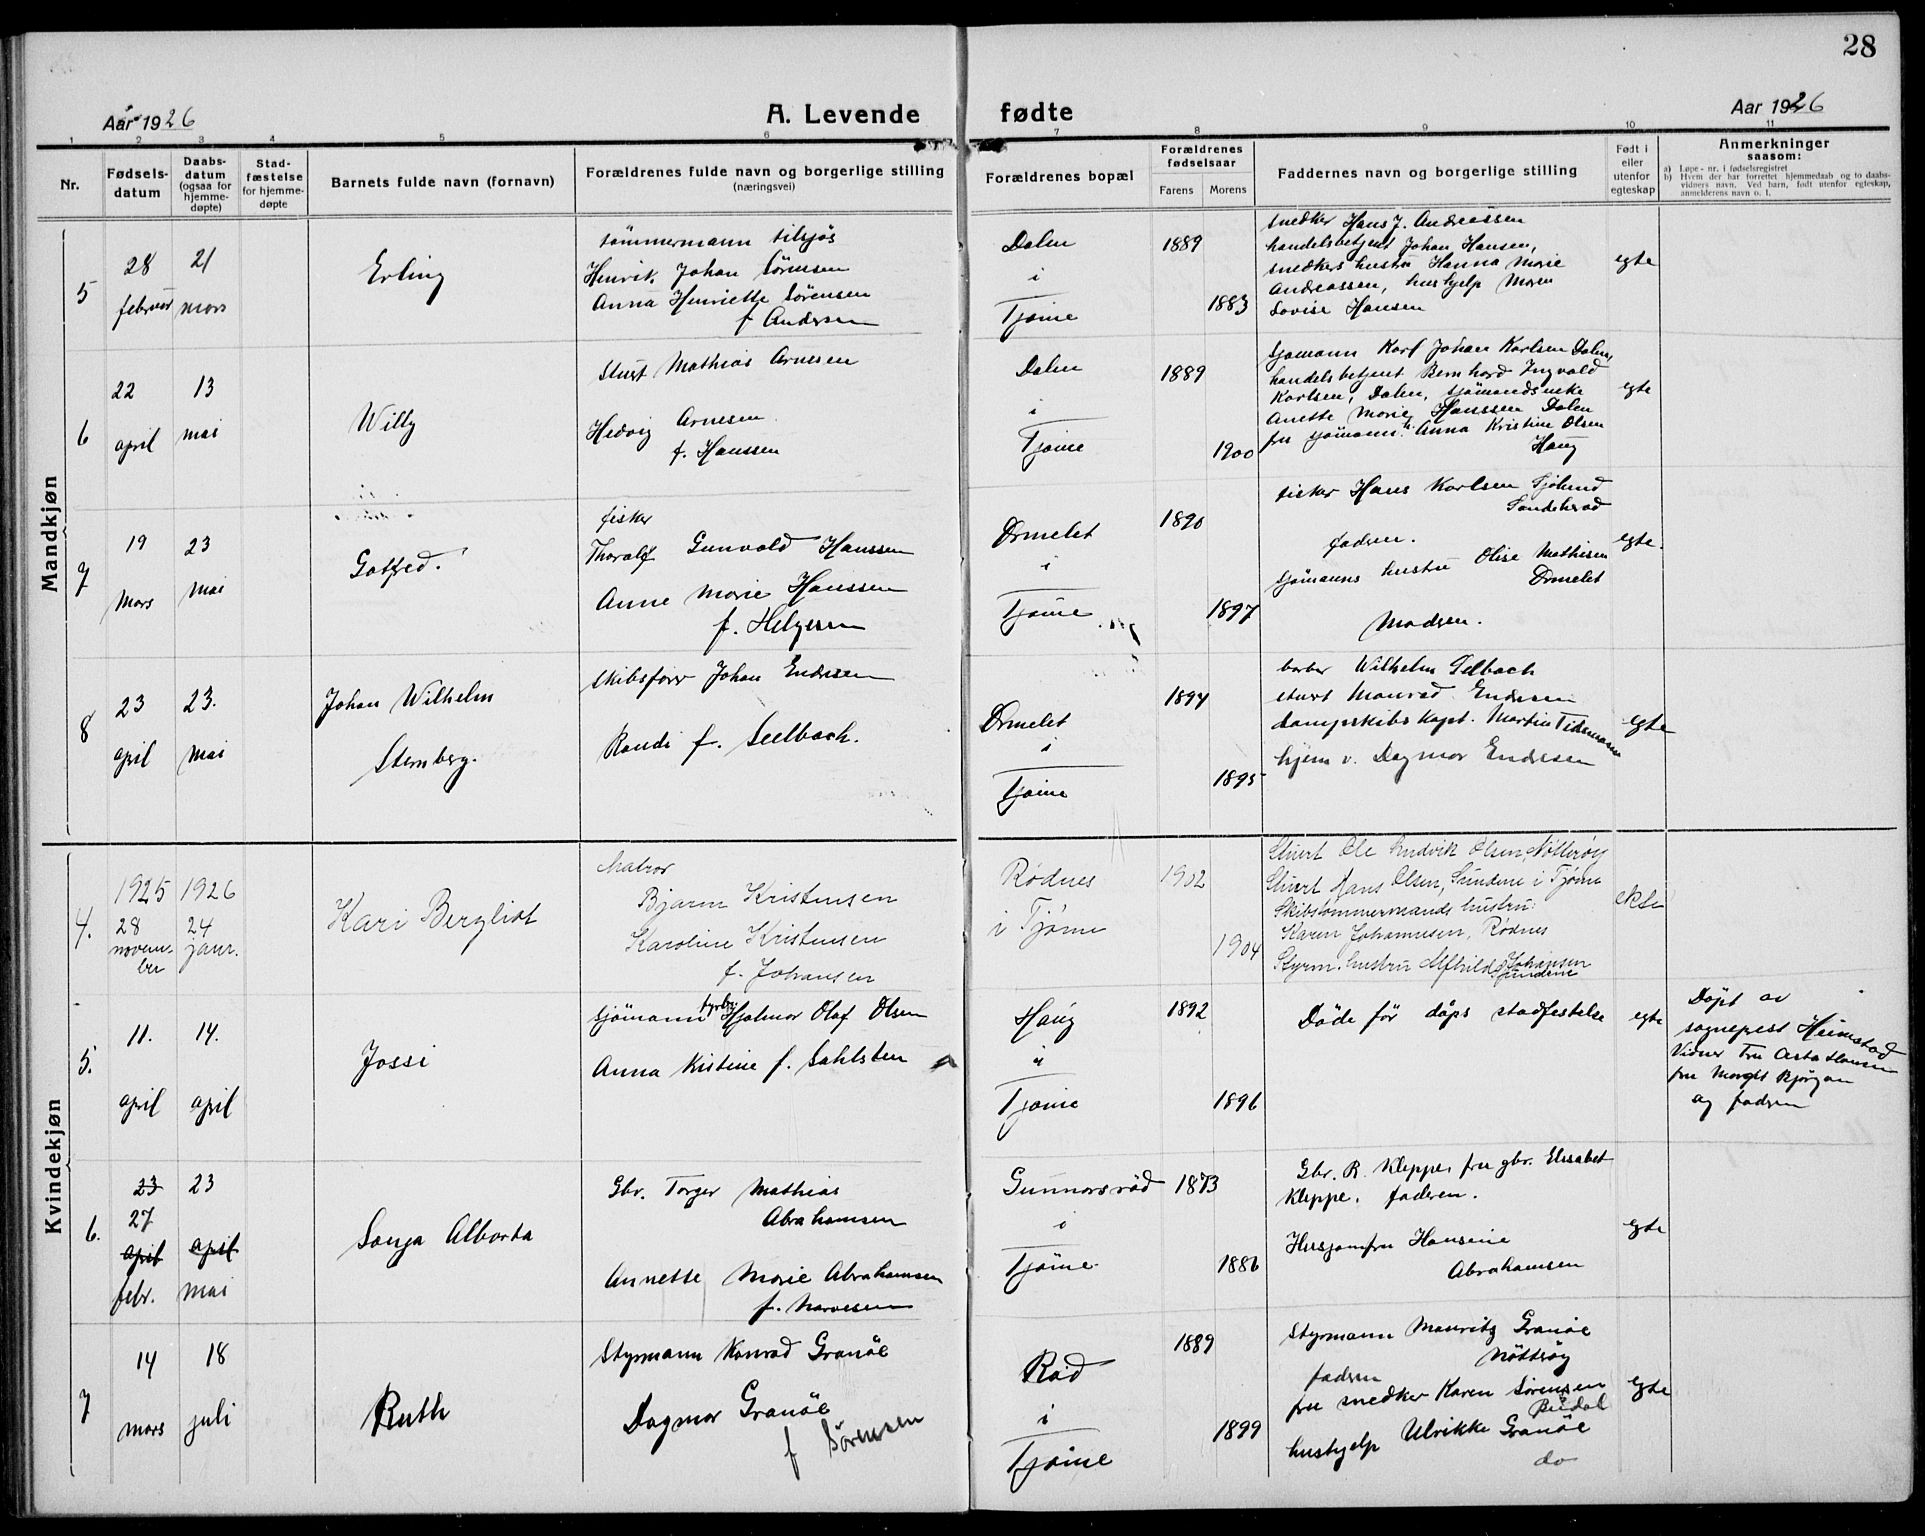 28
Aar 1926
A. Levende
fødte
Aar 1926
1 2 3 4 5 6 7 8 9 10 11
Nr.
Fødsels-
datum
Daabs-
datum
(ogsaa for
hjemme-
døpte)
Stad-
fæstelse
for hjemme-
døpte
Barnets fulde navn (fornavn)
Forældrenes fulde navn og borgerlige stilling
(næringsvei)
Forældrenes bopæl
Forældrenes
fødselsaar
Farens
Morens
Faddernes navn og borgerlige stilling
Født i
eller
utenfor
egteskap
Anmerkninger
saasom:
a) Løpe-nr. i fødselsregistret
b) Hvem der har forrettet hjemmedaab og to daabs-
vidners navn. Ved barn, født utenfor egteskap,
anmelderens navn o. l.
Mandkjøn
5
28
februar
21
mars
Erling
tømmermann tilsjøs
Henrik Johan Sørensen
Anna Henriette Sørensen
f Andersen
Dalen
i
Tjøme
1889
1883
snedker Hans J. Andreassen
handelsbetjent Johan Hansen,
snedkers hustru Hanna Marie
Andreassen, hushjelp Maren
Lovise Hansen
egte
6
22
april
13
mai
Willy
Stuert Mathias Arnesen
Hedvig Arnesen
f. Hanssen
Dalen
i
Tjøme
1889
1900
Sjømann Karl Johan Karlsen Dalen,
handelsbetjent Bernhard Ingvald
Karlsen, Dalen, sjømandsenke
Anette Marie Hanssen Dalen
fru sjømann. Anna Kristine Olsen
Haug
egte
7
19
Mars
23
mai
Gotfred.
fisker
Thoralf Gunvald Hanssen
Anne Marie Hanssen
f. Helgesen
Ormelet
i
Tjøme
1890
1897
fisker Hans Karlsen Sjølund
Sandeherad
faderen.
sjømanns hustru Olise Mathisen
Ormelet
Modren.
egte.
8
23
april
23.
mai
Johan Wilhelm
Sternberg.
Skibsfører Johan Endresen
Randi f. Seelbach.
Ormelet
i
Tjøme
1894
1895
barber Wilhelm Selbach
stuert Monrad Endresen
dampskibs kapt. Martin Tidemann
hjem v. Dagmar Endresen
egte
Kvindekjøn
4.
1925
28
novem-
ber
1926
24
janr.
Kari Bergliot
Matros
Bjarne Kristensen
Karoline Kristensen
f. Johansen
Rødnes
i Tjøme
1902
1904
Stuert Ole Ludvik Olsen, Nøtterøy
Stuert Hans Olsen, Sundene i Tjøme
Skibstømmermands hustru:
Karen Johannesen, Rødnes
Styrm. hustru Alfhild Johansen
Sundene
ekte
5.
11.
april
14.
april
Jossi
sjømann fyrb. Hjalmar Olaf Olsen
Anna Kistine f. Sahlsten
Haug
i
Tjøme
1892
1896
Døde før dåps stadfestelse
egte
Døpt av
sogneprest Heimstad
Vidner Fru Asta Hansen
fru Margit Bjørgan
og fadren
6.
23
27
april
febr.
23
april
mai
Sonja Alborta
Gbr. Torger Mathias
Abrahamsen
Annette Marie Abrahamsen
f. Narvesen
Gunnarsrød
i
Tjøme
1873
1886
Gbr. R. Kleppe, fru gbr. Elisabet
Kleppe. faderen.
Husjomfru Hansine
Abrahamsen
egte
7
14
mars
18
juli
Ruth
Styrmann Konrad Granøe
Dagmar Granøe
f Sørensen
Rød
i
Tjøme
1889
1899
Styrmann Mauritz Granøe
Nøtterøy
fadren
fru snedker Karen Sørensen
Budal
hushjelp Ulrikke Granøe
do
egte